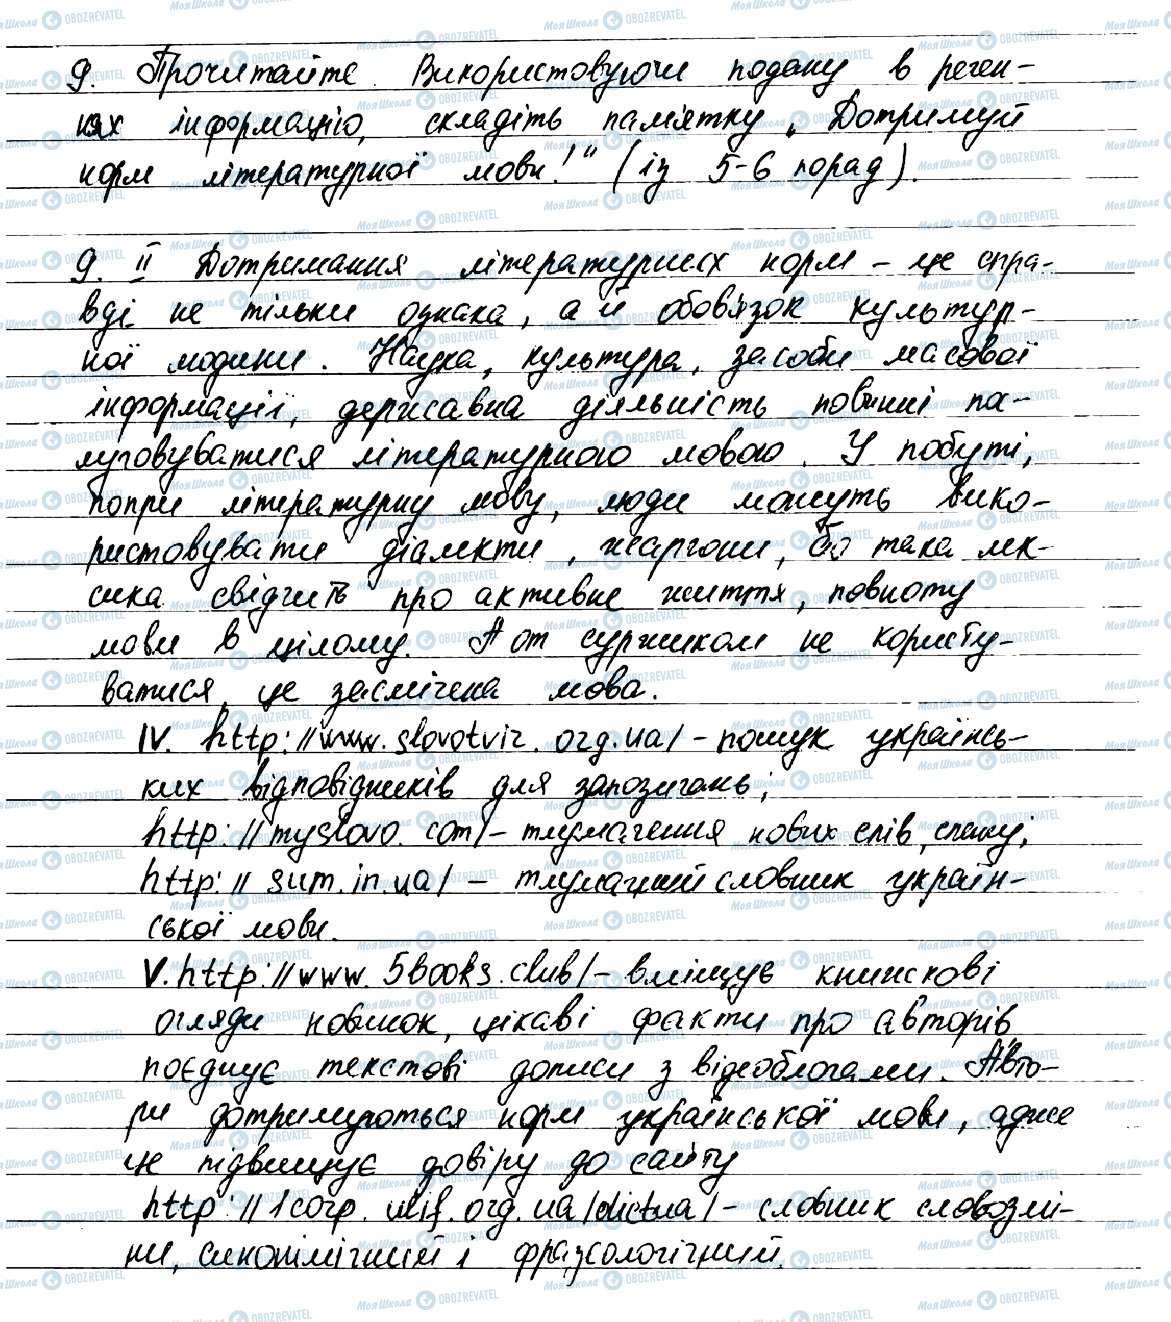 9. Прочитайте. Використовуючи подану в речен-
нях інформацію, складіть пам'ятку „Дотримуй
норм літературної мови!" (із 5-6 порад).
9. II Дотримання літературних норм - це спра-
вді не тільки ознака, а й обов'язок культур-
ної людини. Наука, культура, засоби масової
інформації, державна діяльність повинні по-
слуговуватися літературною мовою. У побуті,
попри літературну мову, люди можуть вико-
ристовувати діалекти, жаргони, бо така лек-
сика свідчить про активне життя, повноту
мови в цілому. А от суржиком не користу-
ватися, це засмічена мова.
IV. http://www.slovotvir.org.ua/ - пошук українсь-
ких відповідників для запозичень;
http://myslovo.com/ - тлумачення нових слів, сленгу;
http://sum.in.ua/ - тлумачний словник україн-
ської мови.
V. http://www.5books.club/ - вміщує книжкові
огляди новинок, цікаві факти про авторів,
поєднує текстові дописи з відеоблогами. Авто-
ри дотримуються норм української мови, адже
це підвищує довіру до сайту
http://lcorp.ulif.org.ua/dictua/ - словник словозмі-
ни, синонімічний і фразеологічний.